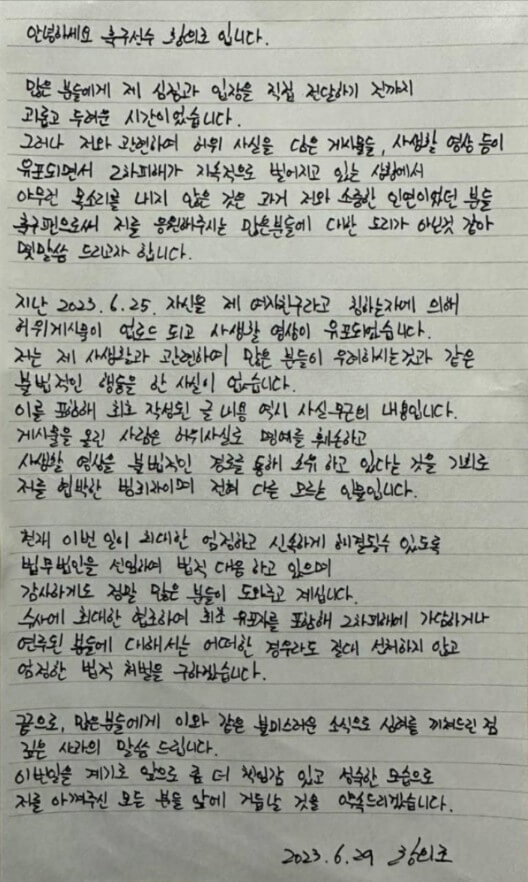 안녕하세요 축구선수 황의조 입니다.
많은 분들에게 제 심정과 입장을 직접 전달하기 전까지
괴롭고 두려운 시간이었습니다.
그러나 저와 관련하여 허위 사실을 담은 게시물들, 사생활 영상 등이
유포되면서 2차피해가 지속적으로 벌어지고 있는 상황에서
아무런 목소리를 내지 않은 것은 과거 저와 소중한 인연이었던 분들
축구팬으로써 저를 응원해주시는 많은분들에 다반 도리가 아닌것 같아
몇말씀 드리고자 합니다.
지난 2023.6.25. 자신을 제 여자친구라고 칭하는자에 의해
허위게시물이 업로드 되고 사생활 영상이 유포되었습니다.
저는 제 사생활과 관련하여 많은 분들이 우려하시는것과 같은
불법적인 행동을 한 사실이 없습니다.
이를 포함해 최초 작성된 글 내용 역시 사실무근의 내용입니다.
게시물을 올린 사람은 허위사실로 명예를 훼손하고
사생활 영상을 불법적인 경로를 통해 소유 하고 있다는 것을 기회로
저를 협박한 범죄자이며 전혀 다를 모르는 인물입니다.
현재 이번 일이 최대한 엄정하고 신속하게 해결될수 있도록
법무법인을 선임하여 법적 대응 하고 있으며
감사하게도 정말 많은 분들이 도와주고 계십니다.
수사에 최대한 협조하여 최초 유포자를 포함해 2차피해에 가담하거나
연루된 분들에 대해서는 어떠한 경우라도 절대 선처하지 않고
엄정한 법적 처벌을 구하겠습니다.
끝으로, 많은분들에게 이와 같은 불미스러운 소식으로 심려를 끼쳐드린 점
깊은 사과의 말씀 드립니다.
이번일을 계기로 앞으로 좀 더 책임감 있고 성숙한 모습으로
저를 아껴주신 모든 분들 앞에 거듭날 것을 약속드리겠습니다.
2023.6.29 황의조